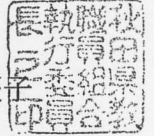 秋田県教
職員組合
執行委員
長之印
子